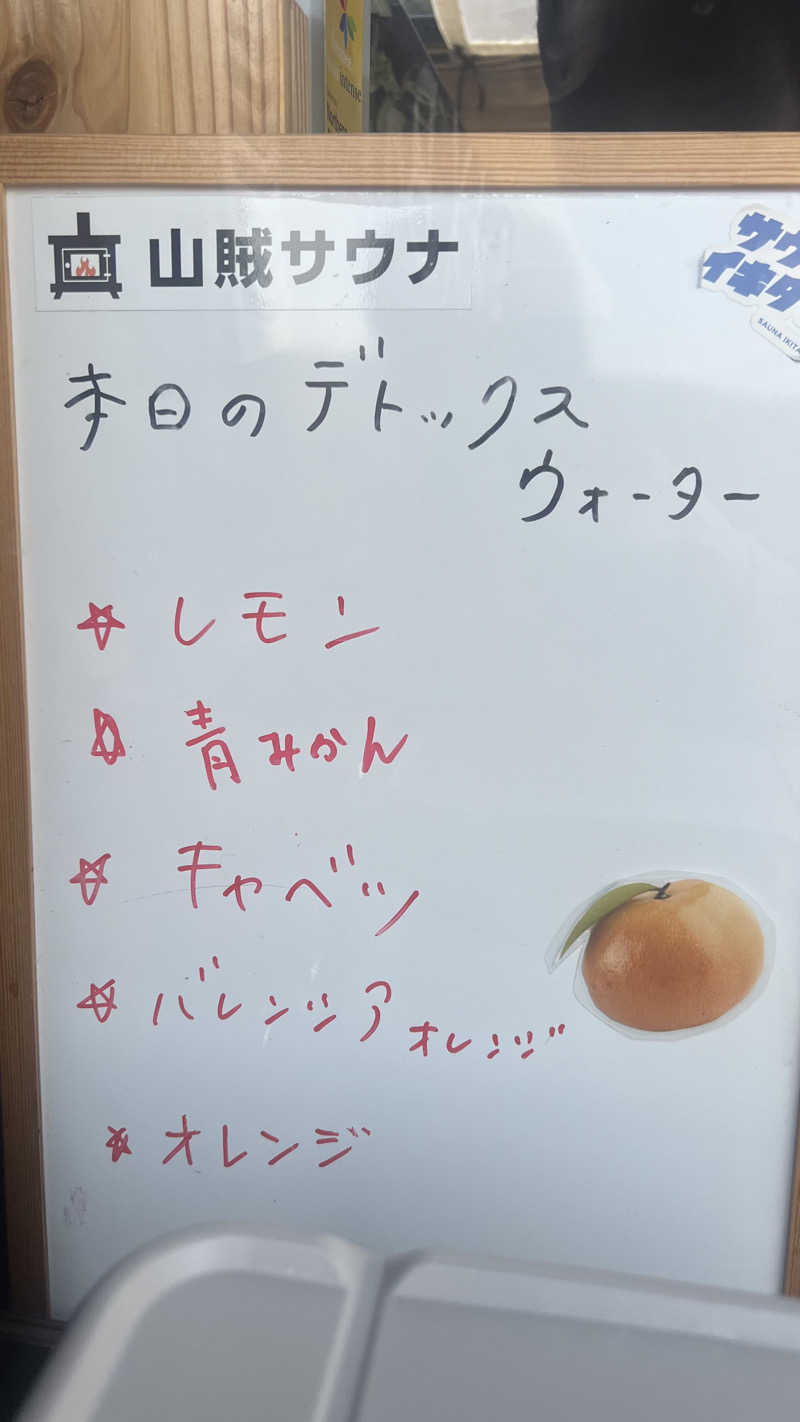 intense
山賊サウナ
サウ
イキタ
SAUNA IKITA
本日のデトックス
ウォーター
☆ レモン
☆ 青みかん
☆ キャベツ
☆ バレンシアオレンジ
☆ オレンジ